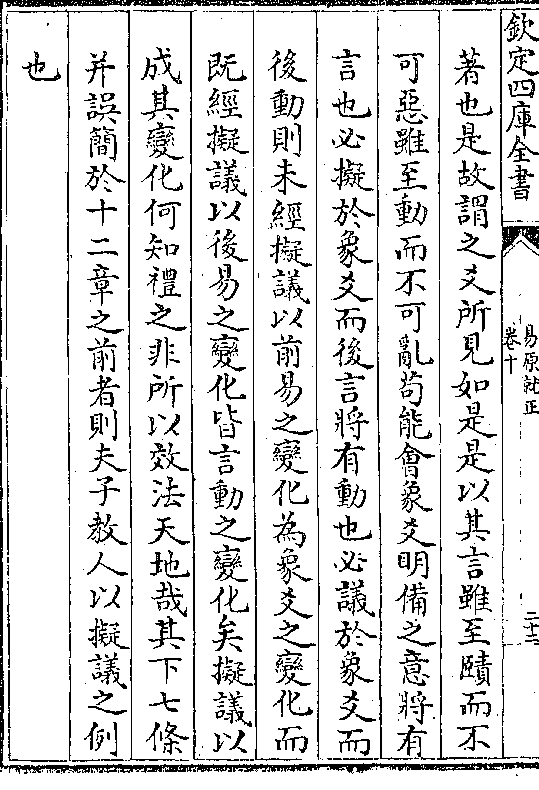 欽定四庫全書
易原就正
卷十
二十三
著也是故謂之爻所見如是是以其言雖至賾而不
可惡雖至動而不可亂苟能會象爻明備之意將有
言也必擬於象爻而後言將有動也必議於象爻而
後動則未經擬議以前易之變化為象爻之變化而
既經擬議以後易之變化皆言動之變化矣擬議以
成其變化何知禮之非所以效法天地哉其下七條
并誤簡於十二章之前者則夫子教人以擬議之例
也